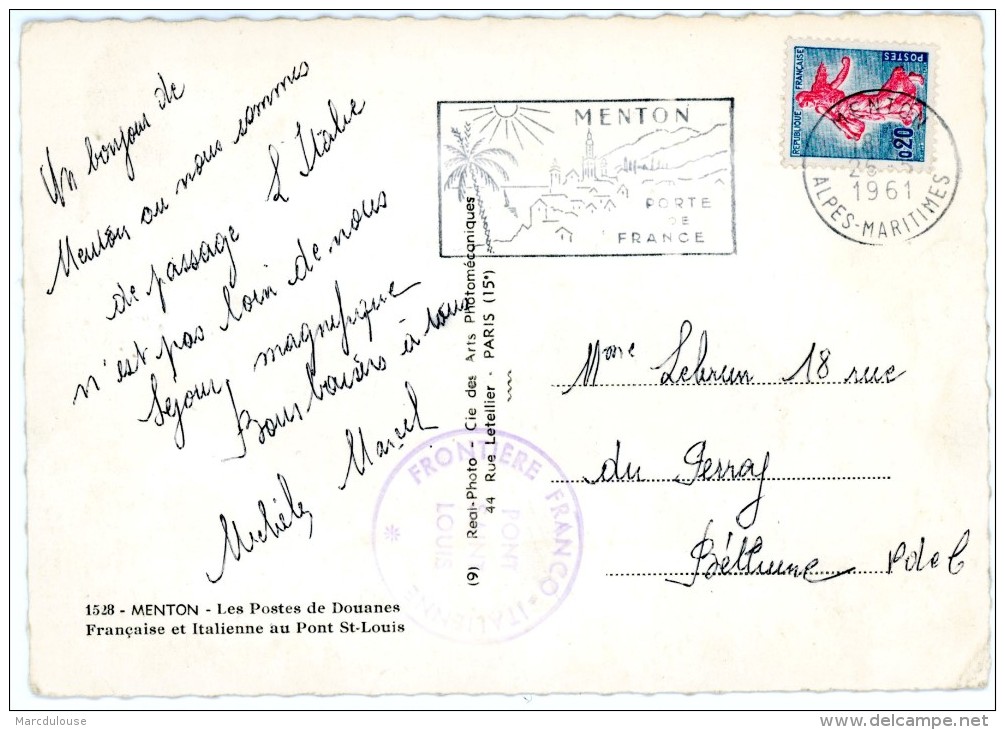 Un bonjour de
Menton ou nous sommes
de passage L'Italie
n'est pas loin de nous
Séjour magnifique
Bons baisers à tous
Michèle Marcel
1528 - MENTON - Les Postes de Douanes
Française et Italienne au Pont St-Louis
(9) Real-Photo - Cie des Arts Photomécaniques
44 Rue Letellier - PARIS (15e)
FRONTIÈRE FRANCO-ITALIENNE
PONT
LOUIS
MENTON
PORTE
DE
FRANCE
REPUBLIQUE FRANÇAISE
POSTES
0,20
MENTON
26
1961
ALPES-MARITIMES
Mme Lebrun 18 rue
du Perroy
Béthune P de C
Marcdulouse
delcampe.net